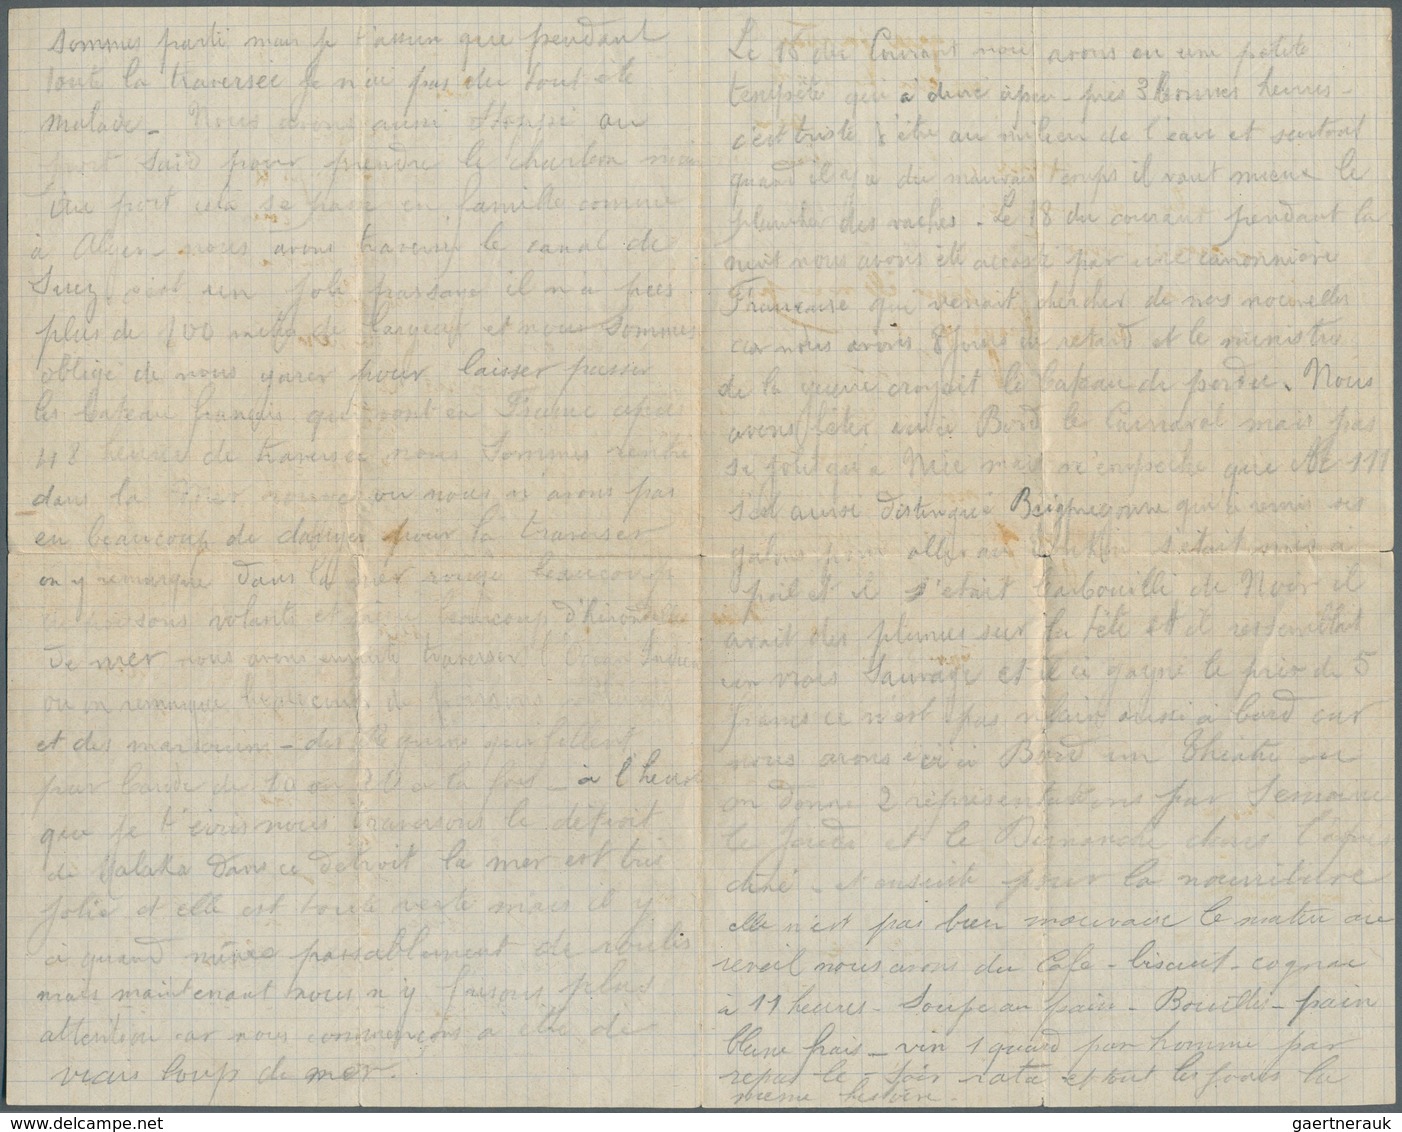 sommes parti mais je t'assure que pendant
tout la traversée je n'ai pas du tout été
malade - Nous avons aussi Stopé au
port Saïd pour prendre le charbon mais
port cela se passe en famille comme
à Alger - nous avons traversé le canal de
Suez c'est un joli passage il n'a pas
plus de 100 mètres de largeur et nous sommes
obligé de nous garer pour laisser passer
les bateau français qui vont en France après
48 heures de traversée nous sommes rentré
dans la mer rouge ou nous n'avons pas
eu beaucoup de danger pour la traverser
on y remarque dans la mer rouge beaucoup
de poissons volants et beaucoup d'hirondelles
de mer nous avons ensuite traverser l'Océan Indien
ou on remarque beaucoup de poissons
et des marsouins - des
par bande de 10 ou 20 a la fois - à l'heure
que je t'écris nous traversons le détroit
de Malaka dans ce détroit la mer est très
jolie et elle est toute verte mais il y
a quand même passablement de roulis
mais maintenant nous n'y faisons plus
attention car nous commençons a être de
vrais loup de mer.
Le 16 du Courant nous avons eu une petite
tempête qui a duré àpeu-près 3 bonnes heures -
c'est triste d'être au milieu de l'eau et surtout
quand il y a du mauvais temps il vaut mieux le
plancher des vaches - Le 18 du courant pendant la
nuit nous avons été accosté par une canonnière
Française que venait chercher de nos nouvelles
car nous avons 8 jours de retard et le ministre
de la guerre croyait le bateau de perdu. Nous
avons fêter aussi à Bord le Carnaval mais pas
si joli qu'à Nice mais n'empeche que le 111
s'est aussi distingué qui à remis ses
galons pour aller au s'était mis à
poil et il s'était barbouillé de Noir il
avait des plumes sur la tête et il ressemblait
un vrais Sauvage et il a gagné le prix de 5
francs ce n'est pas vilain aussi à bord car
nous avons ici à Bord un théâtre ou
on donne 2 représentations par Semaine
le jeudi et le Dimanche dans l'après
diné - et ensuite pour la nourriture
elle n'est pas bien mauvaise le matin au
reveil nous avons du Café - biscuit - cognac
à 11 heures - Soupe au pain - Bouilli - pain
blanc frais - vin 1 quard par homme par
repas le - soir rata et tout les jours la
même histoire.